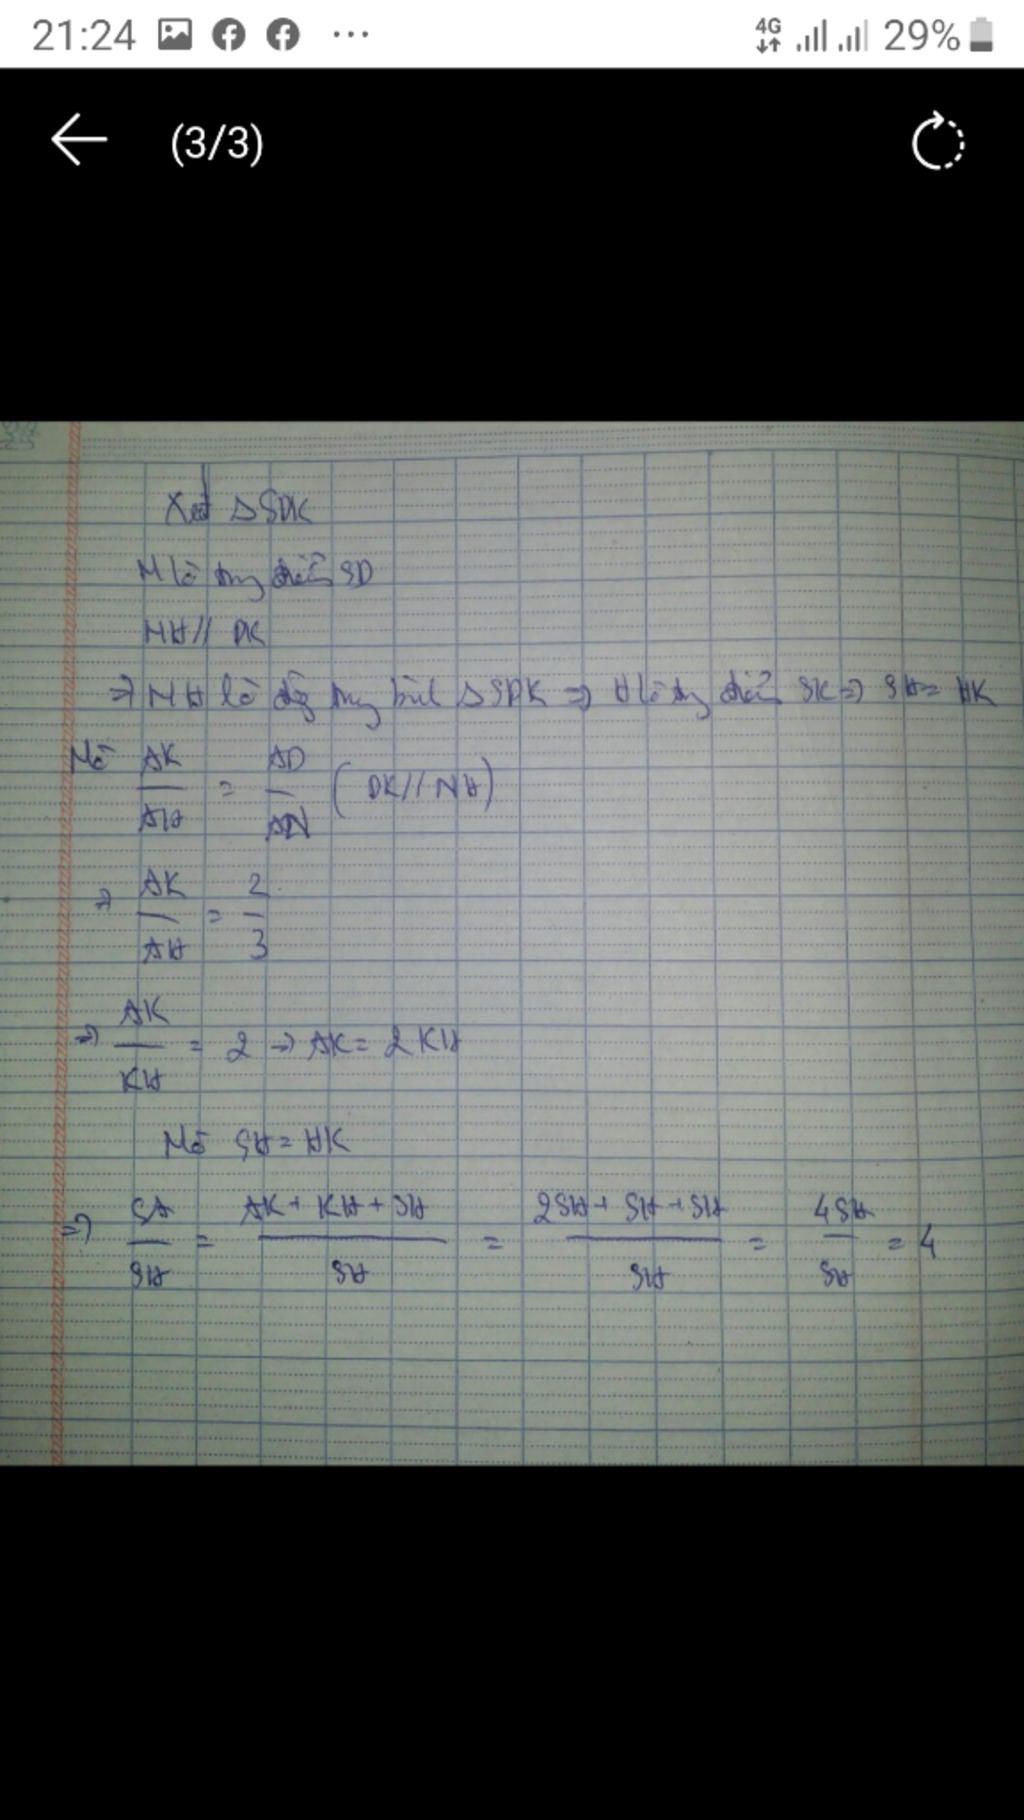 21:24 ... 4G 29%
(3/3)
Xét ΔSDK
M là trung điểm SD
MH // DK
=> MH là đg trung bình ΔSDK => H là trung điểm SK => SH = HK
Mà AK/AH = AD/AN (DK // NH)
=> AK/AH = 2/3
=> AK/KH = 2 -> AK = 2KH
Mà SH = HK
=> SA/SH = AK + KH + SH/SH = 2SH + SH + SH/SH = 4SH/SH = 4